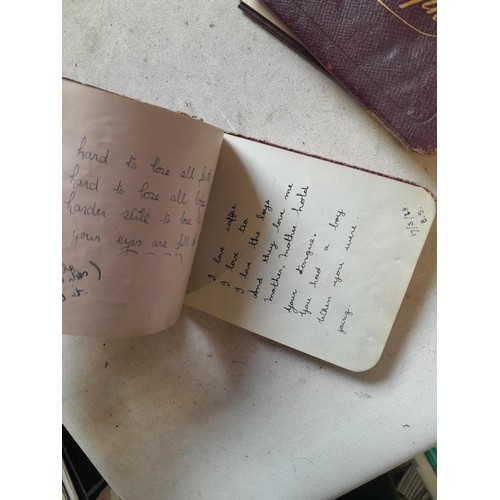 hard to lose all
hard to lose all
harder still to lose
your eyes are full
it.
I love coffee
I love tea
I love the boys
And they love me
Mother, Mother hold
your tongue.
You had a boy
When you were
yung.
B.S.